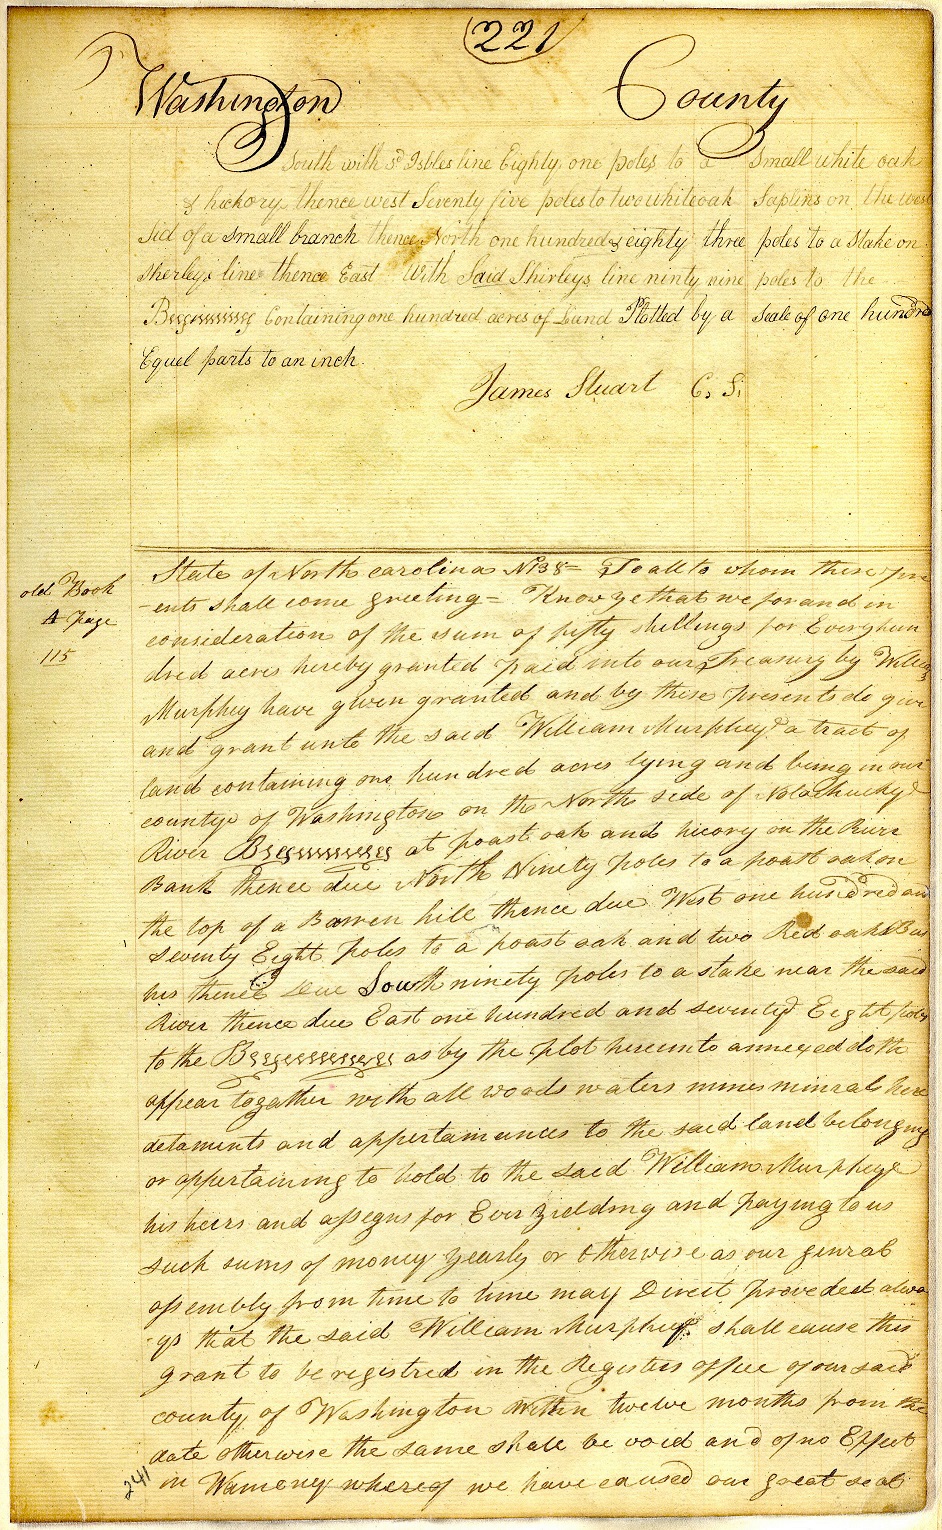 221
Washington County
South with sd Isbles line Eighty one poles to a small white oak
& hickory thence west Seventy five poles to two white oak Saplins on the west
Sid of a small branch thence North one hundred & eighty three poles to a Stake on
Sherleys line thence East With Said Shirleys line ninty nine poles to the
Beginning Containing one hundred acres of Land Plotted by a Scale of one hundred
Equel parts to an inch
James Stuart C, S,
old Book
A page
115
State of North carolina No 38 = To all to whom these pre
-ents shall come greeting = Know ye that we for and in
consideration of the sum of fifty shillings for Everyhun
dred acres hereby granted paid into our Treasury by William
Murphey have given granted and by these presents do give
and grant unto the said William Murphey a tract of
land containing one hundred acres lying and being in our
county of Washington on the North side of Nolachucky
River Beginning at poast oak and hicory on the River
Bank thence due North Ninety poles to a poast oak on
the top of a Barren hill thence due West one hundred and
seventy Eight poles to a poast oak and two Red oaks Bus
his thence due South ninety poles to a stake near the said
River thence due East one hundred and seventy Eight poles
to the Beginning as by the plot hereunto annexed doth
appear togather with all woods waters mines minral here
detaments and appertainances to the said land belonging
or appertaining to hold to the said William Murpheye
his heirs and assegns for Ever yielding and paying to us
such sums of money yearly or otherwise as our genral
assembly from time to time may Direct provedest alwa
-ys that the said William Murphey shall cause this
grant to be registred in the Registers office of our said
county of Washington within twelve months from the
date otherwise the same shall be void and of no Effect
in Wameny whereof we have caused our great seal
241